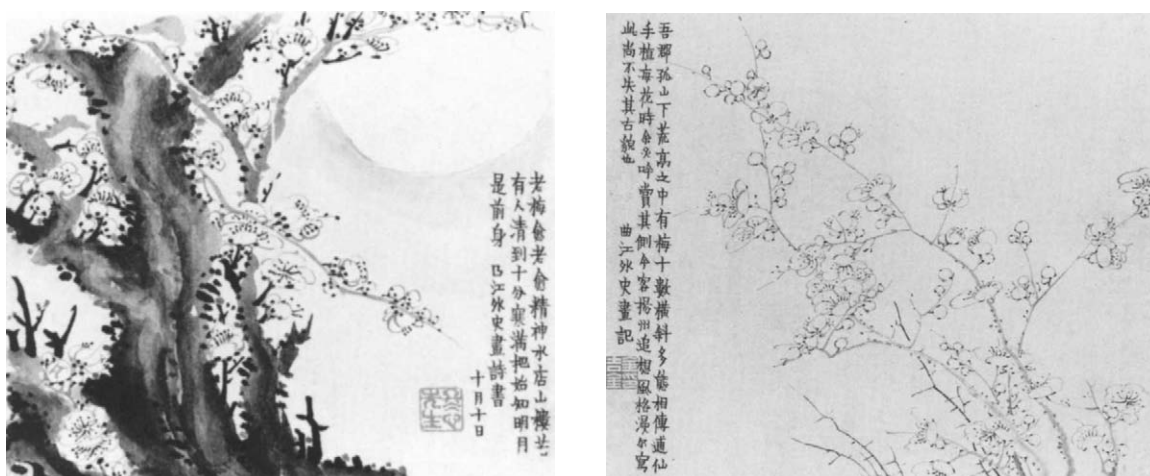 老梅愈老愈精神水店山樓若
有人清到十分寒滿把始知明月
是前身 曲江外史畫詩書
十月十日
冬心先生
吾郡孤山下荒亭之中有梅十數橫斜多態相傳逋仙
手植每花時吟賞其側今客揚州追想風格漫尔寫
此尚不失其古貌也 曲江外史畫記